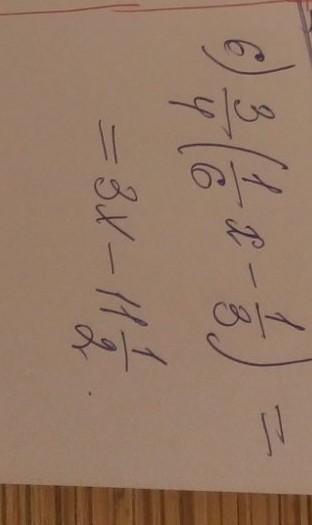 б) 3/4 (1/6 x - 1/3) =
= 3x - 11 1/2.